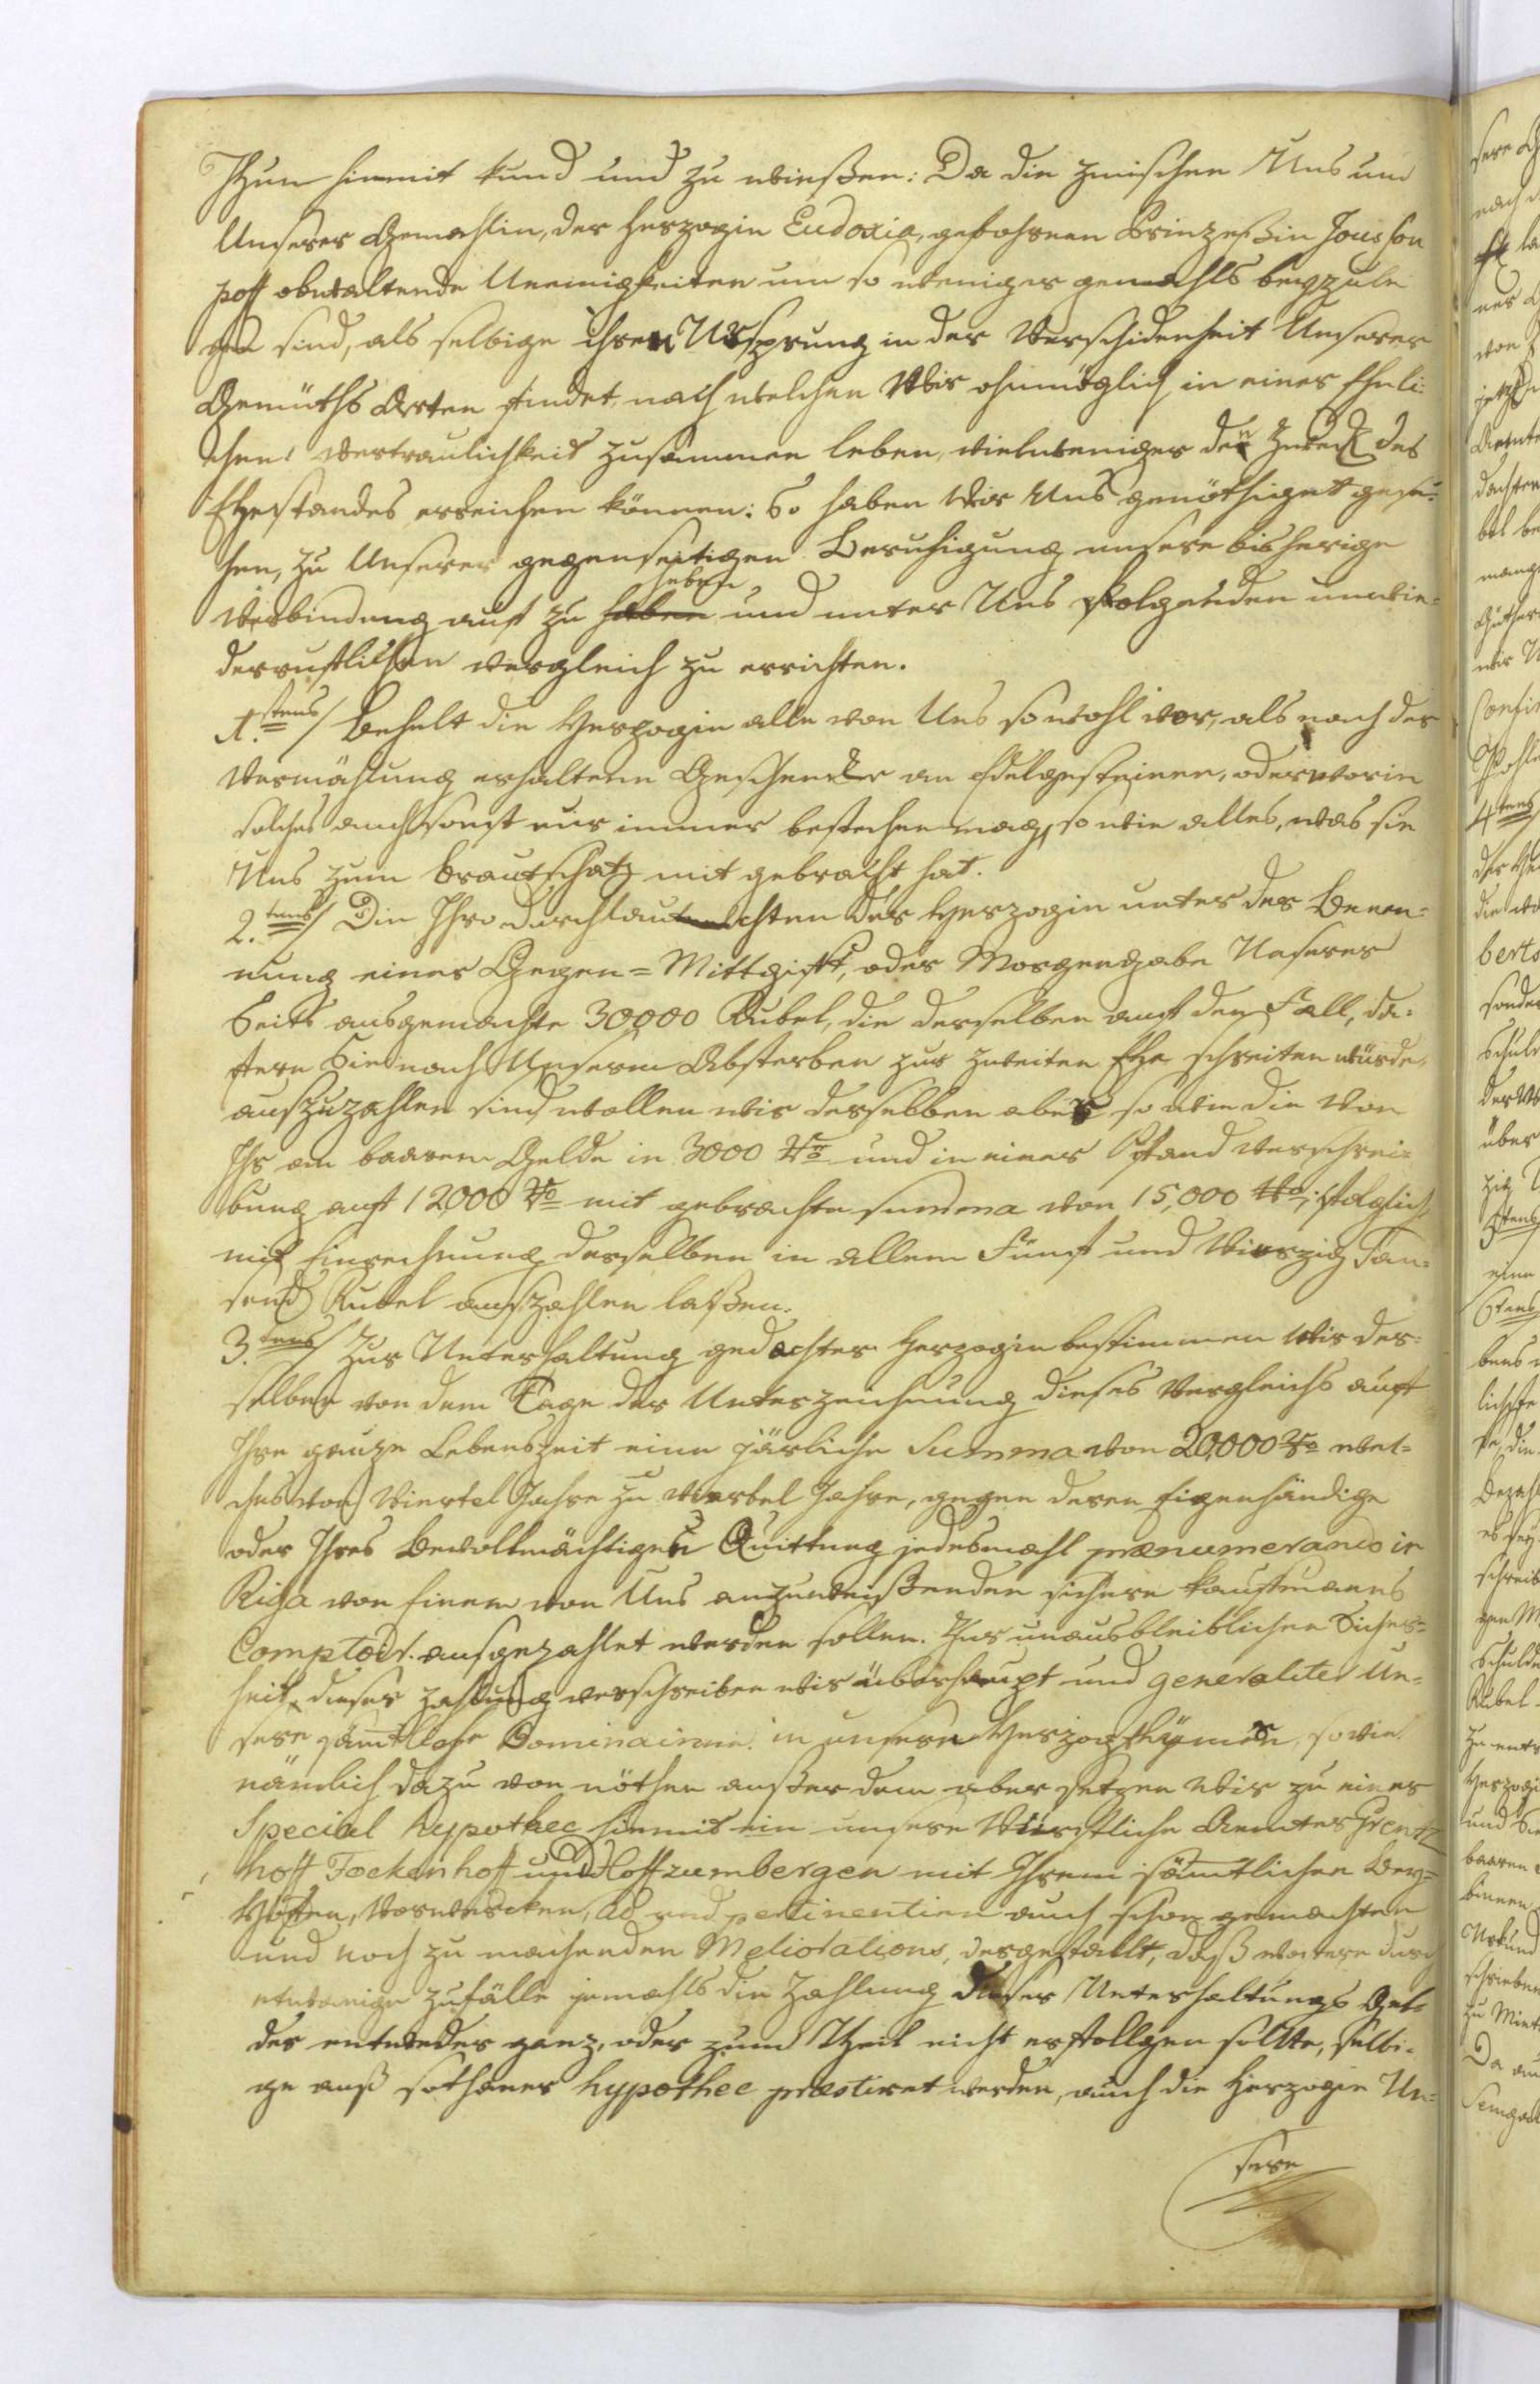 Thun hiemit kund und zu wießen: Da die zwischen Uns und
Unserer Gemahlin, der Herzogin Eudoxia, gebohrnen Prinzeßin Jousou
poff obwaltende Uneinigkeiten um so weniger gemahls beyzule
gen sind, als selbige ihren Ursprung in der Verschidenheit Unserer
Gemüths Arten findet, nach welchen Wir ohnmöglich in einer Eheli
chen Vertraulichkeit zusammen leben, vielweniger den Zweck des
Ehestandes erreichen können: So haben Wir Uns genöthiget gese-
hen, zu Unserer gegenseitigen Beruhigung unsere bisherige
heben
Verbindung auf zu haben und unter Uns folgenden unwie-
derruflichen Vergleich zu errichten.
1.stens/ Behelt die Herzogin alle von Uns sowohl vor, als nach der
Vermählung erhaltenen Geschencke an Edelgesteinen, oder worin
solches auch sonst nur immer bestehen mag, so wie alles, was sie
Uns zum Brautschatz mit gebracht hat.
2.tens/ Die Ihro Durchlauchten der Herzogin unter der Benen-
nung einer Gegen=Mittgifft, oder Morgengabe Unserer
Seits ausgemachte 30,000 Rubel, die derselben auf den Fall, da-
fern Sie nach Unserm Absterben zur zweiten Ehe schreiten würde,
auszuzahlen sind wollen wir derselben aber so wie die von
Ihr an baarem Gelde in 3000 Ro und in einer Pfand Verschrei-
bung auf 12,000 Ro mit gebrachte summa von 15,000 Ro, folglich
mit Einrechnung derselben in allem Fünf und Vierzig Tau-
send Rubel auszahlen laßen.
3.tens/ Zur Unterhaltung gedachter Herzogin bestimmen Wir der-
selben von dem Tage der Unterzeichnung dieses Vergleichs auf
Ihre ganze Lebenszeit eine järliche Summa von 20,000 Ro wel-
ches von Viertel Jahre zu Viertel Jahre, gegen deren Eigenhändige
oder Ihres Bevollmächtigten Quittung jedesmahl prænumerando in
Riga von Einem von Uns anzuweißenden sichern Kaufmanns
Comptoir ausgezahlet werden sollen. Zur unausbleiblichen Sicher-
heit dieser Zahlung verschreiben wir überhaupt und generaliter Un-
sere sämtliche Dominainen in unsern Herzogthümern, so wie
nämlich dazu von nöthen außer dem aber setzen Wir zu einer
Special hypothec hiemit ein unsere Fürstliche Aemter Grentz
hoff Fockenhoff und Hoffzumbergen mit Ihrem sämtlichen Bey-
Höffen, Vorwercken, Ad und pertinentien auch schon gemachten
und noch zu machenden Meliorations, dergestallt, daß wenn durch
etwanige Zufälle jemahls die Zahlung dieser Unterhaltungs Gel-
der entweder ganz, oder zum Theil nicht erfollgen sollte, selbi-
ge auß sothaner hypothec præstiret werden, auch die Herzogin Un-
sere